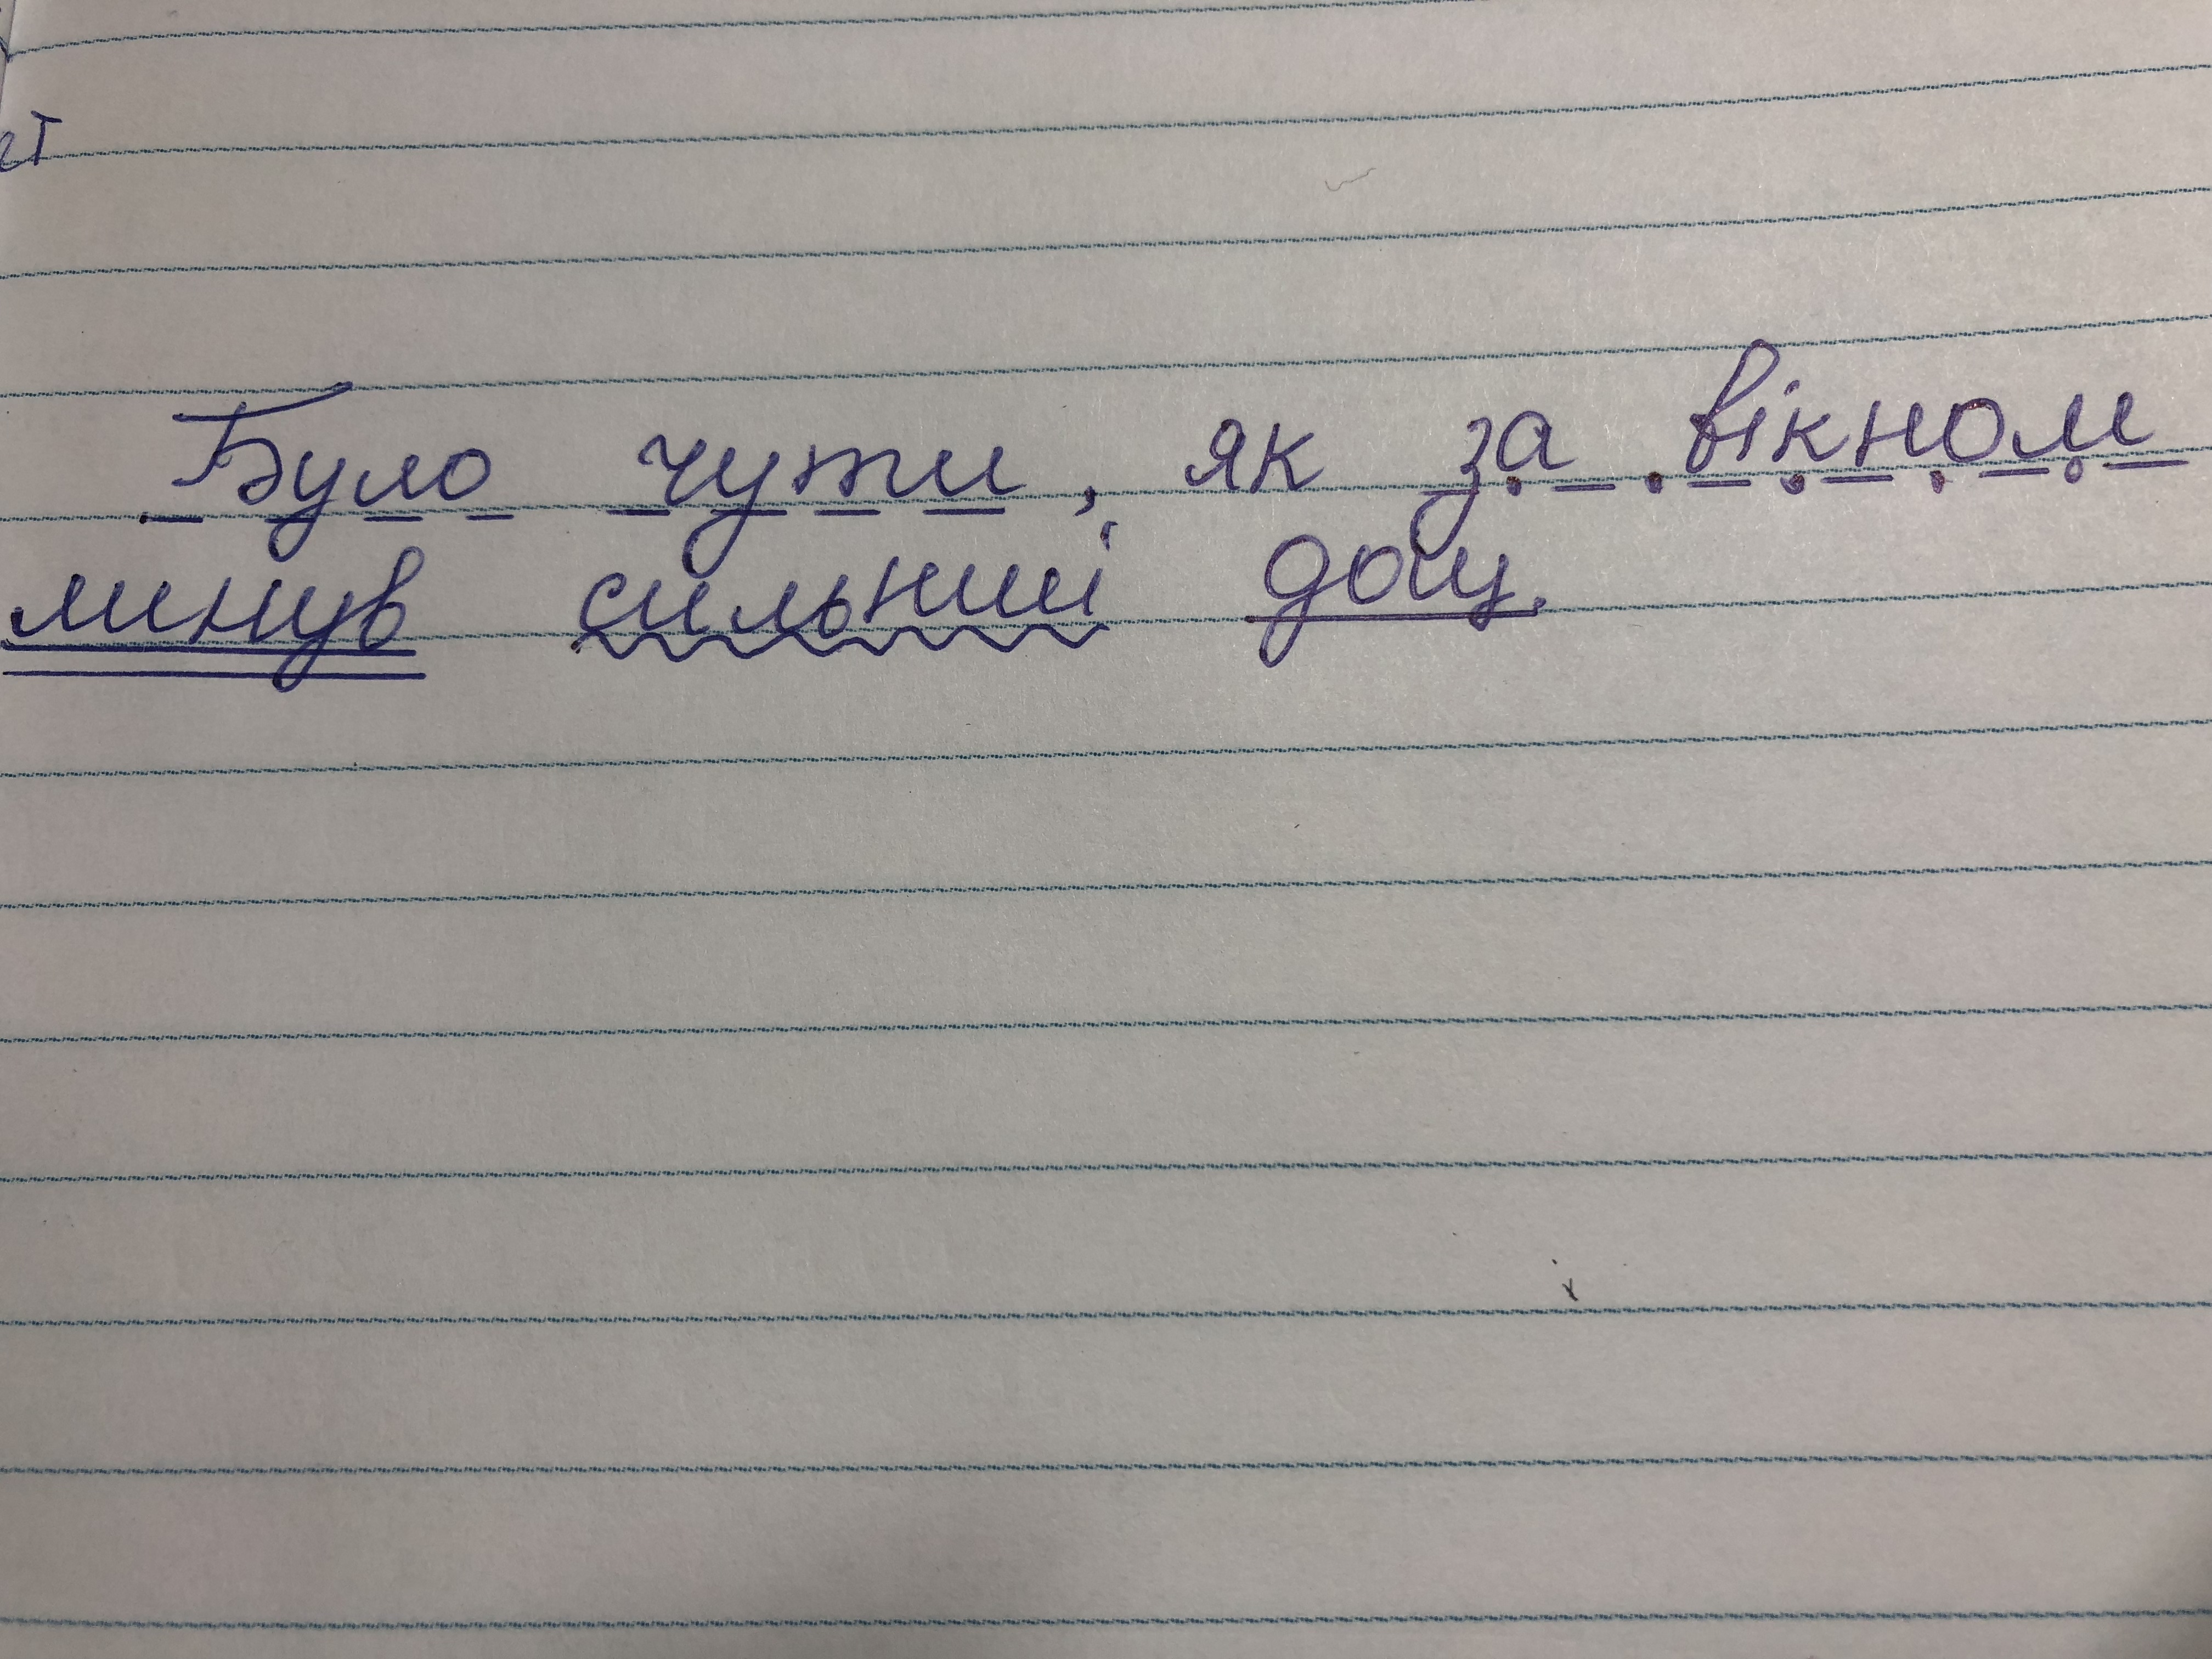 ет
Було чути, як за вікном
линув сильний дощ.